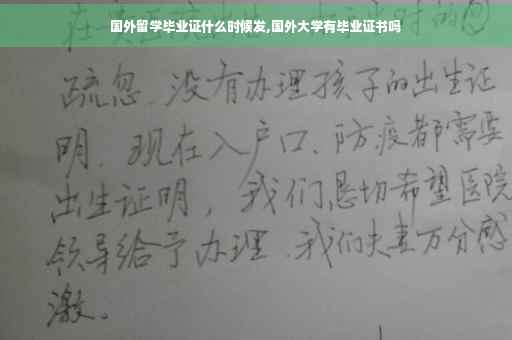 国外留学毕业证什么时候发,国外大学有毕业证书吗
疏忽.没有办理孩子的出生证
明.现在入户口、防疫都需要
出生证明，我们恳切希望医院
领导给予办理.我们夫妻万分感
激。